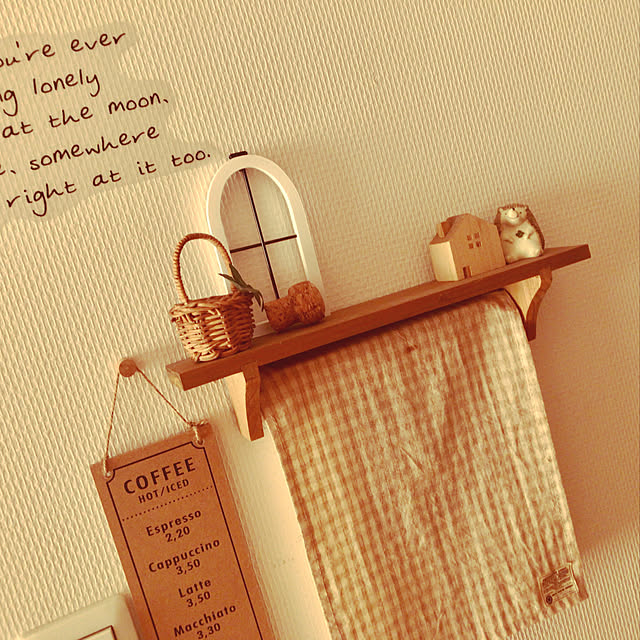 ou're ever
g lonely
at the moon.
, somewhere
right at it too.
COFFEE
HOT/ICED
Espresso
2,20
Cappuccino
3,50
Latte
3,50
Macchiato
3,30